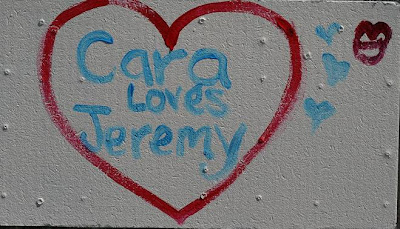 Cara
Loves
Jeremy